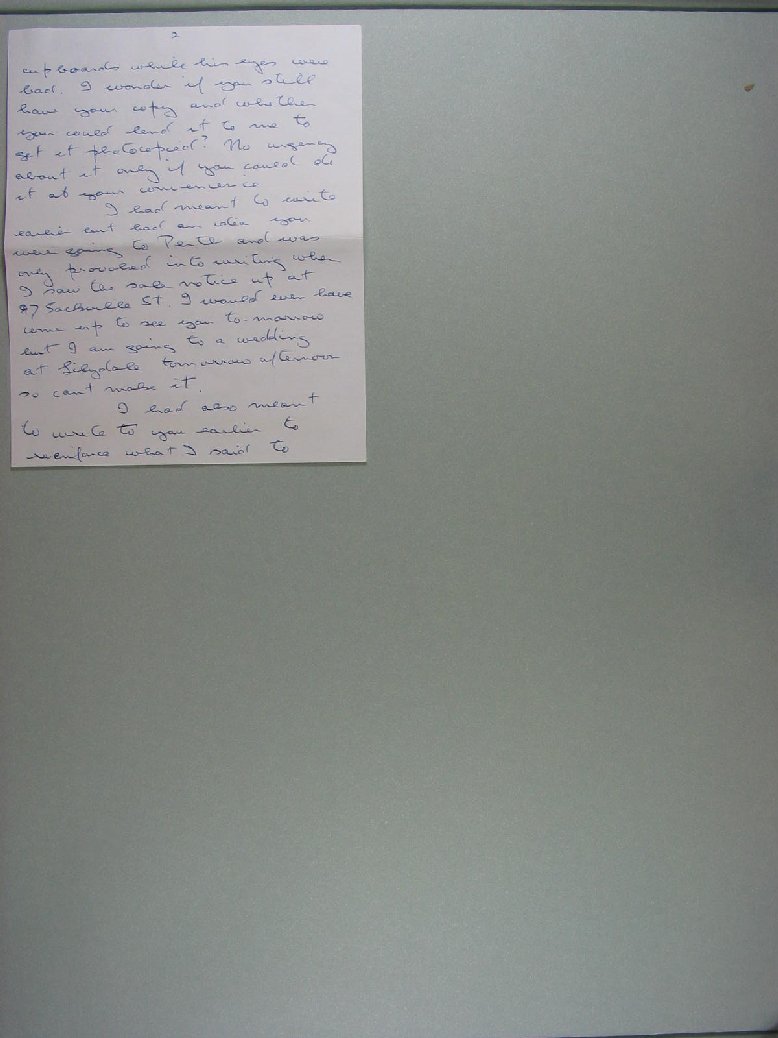 2
cupboards while his eyes were
bad. I wonder if you still
have your copy and whether
you could lend it to me to
get it photocopied? No urgency
about it only if you could do
it at your convenience
I had meant to write
earlier but had an idea you
were going to Perth and was
only provoked into writing when
I saw the sale notice up at
87 Sackville St. I would even have
come up to see you to-morrow
but I am going to a wedding
at Lilydale tomorrow afternoon
so can't make it.
I had also meant
to write to you earlier to
reenforce what I said to